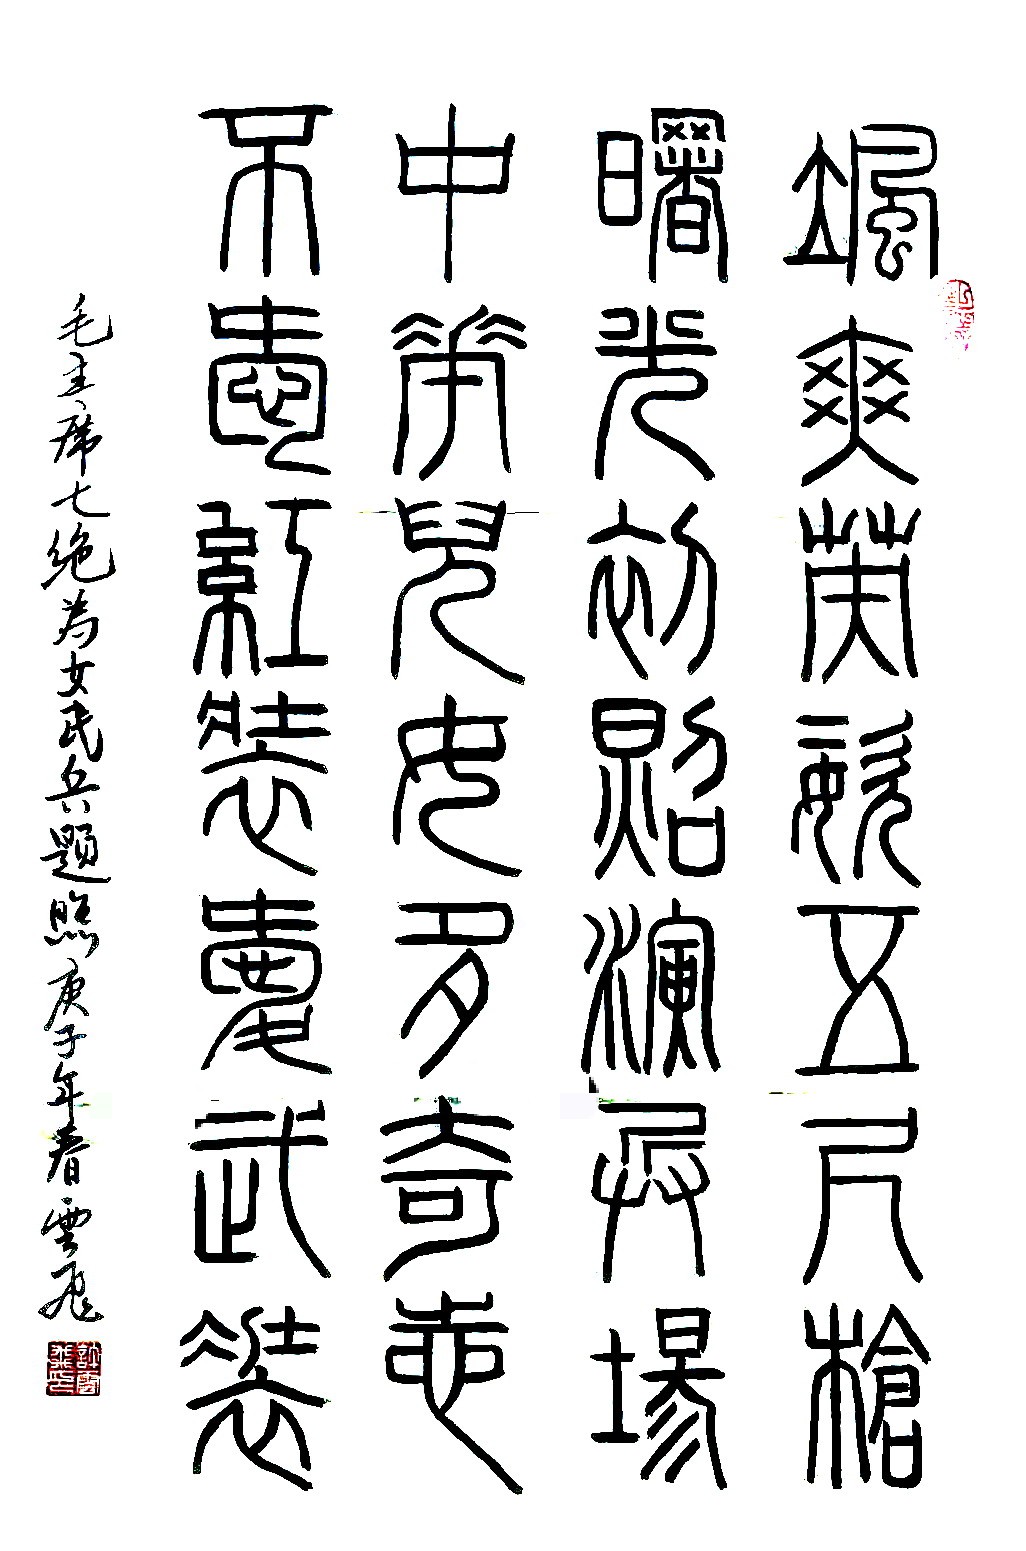 颯爽英姿五尺槍
曙光初照演兵場
中華兒女多奇志
不愛紅裝愛武裝
毛主席七绝为女民兵題照庚子年春雲飛